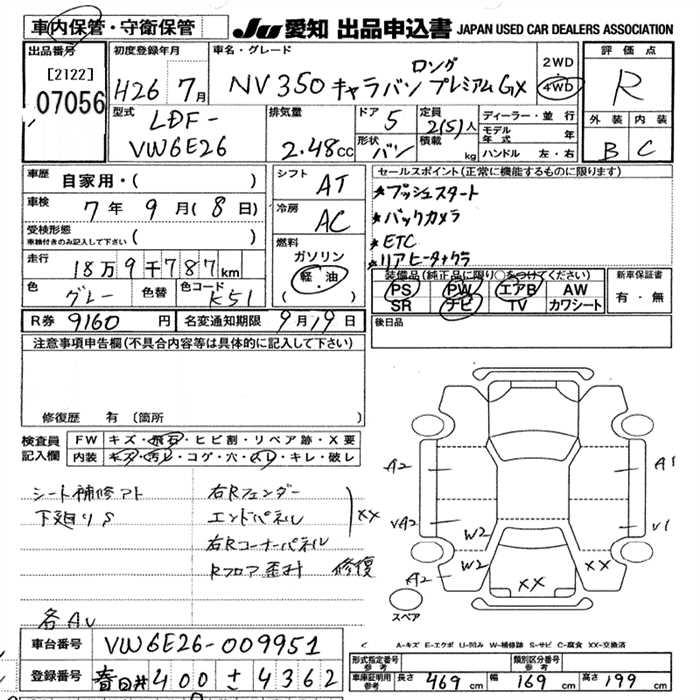 車内保管・守衛保管 JU 愛知 出品申込書 JAPAN USED CAR DEALERS ASSOCIATION
出品番号 [2122] 07056
初度登録年月 H26 7月
車名・グレード NV350 キャラバン ロング プレミアムGX
2WD 4WD
評価点 R
外装 B 内装 C
型式 LDF-VW6E26
排気量 2.48cc
ドア 5 形状 バン
定員 2(5)人 積載 kg
ディーラー・並行
モデル年式 年
ハンドル 左・右
車歴 自家用・( )
車検 7年9月(8日)
受検形態 車検付きのみ記入して下さい ( )
走行 18万9千787km
色 グレー 色替 色コード K51
シフト AT
冷房 AC
燃料 ガソリン 軽油 ( )
セールスポイント(正常に機能するものに限ります)
★プッシュスタート
★バックカメラ
★ETC
★リアヒーター+クーラ
装備品(純正品に限り○をつけてください)
PS PW エアB AW
SR ナビ TV カワシート
新車保証書 有・無
R券 9160円 名変通知期限 9月19日
後日品
注意事項申告欄(不具合内容等は具体的に記入して下さい)
修復歴 有 (箇所
検査員記入欄
FW キズ・飛石・ヒビ割・リペア跡・X要
内装 キズ・汚れ・コゲ・穴・スレ・キレ・破レ
シート補修アト
下廻りS
右Rフェンダー
エンドパネル
右Rコーナーパネル
XX
Rフロア歪み 修復
各AU
A2 A1
VA2 V1
W2
W2 XX
A2 XX
スペア
A-キズ E-エクボ U-凹み W-補修跡 S-サビ C-腐食 XX-交換済
車台番号 VW6E26-009951
登録番号 春日井 400 さ 4362
形式指定番号 参考 類別区分番号 参考
車庫証明用 参考 長さ 469cm 幅 169cm 高さ 199cm